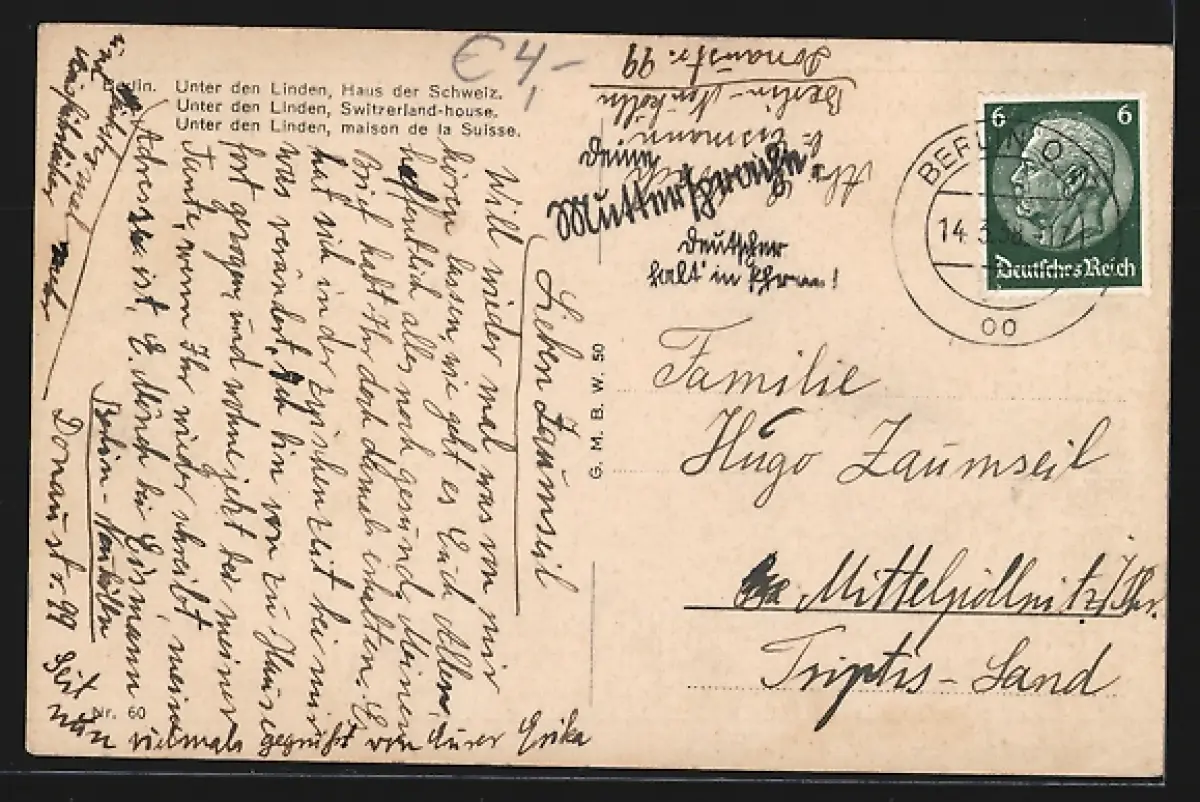 € 4,-
Berlin. Unter den Linden, Haus der Schweiz.
Unter den Linden, Switzerland-house.
Unter den Linden, maison de la Suisse.
Abs.
E. Eismann
Berlin-Neukölln
Donaustr. 99
Deine
Muttersprache
Deutscher
halt in Ehren!
BERLIN O
14.3.38
00
6 6
Deutsches Reich
Familie
Hugo Zaumseil
Mittelpöllnitz/Thr.
Triptis-Land
G. M. B. W. 50
Lieben Zaumseil
Will wieder mal was von mir
hören lassen, wie geht es Euch Allen,
hoffentlich alles noch gesund, Meinen
Brief habt Ihr doch damals erhalten. Es
hat sich in der Zwischenzeit bei mir
was verändert, ich bin von zu Hause
fort gezogen, und wohne jetzt bei meiner
Tante, wenn Ihr wieder schreibt, meine
Adresse ist, E. Mönch bei Eismann
Berlin-Neukölln
Donaustr. 99
Seit
nun vielmals gegrüßt von Eurer Erika
nächstesmal mehr
ausführlicher
Nr. 60